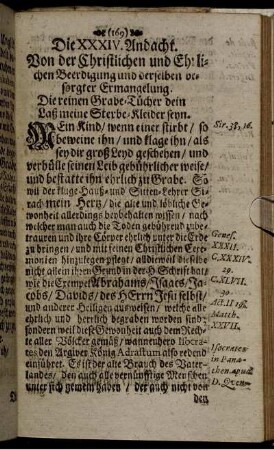 (169)
Die XXXIV. Andacht.
Von der Christlichen und Ehrlichen
Beerdigung und derselben besorgter
Ermangelung.
Die reinen Grabe-Tücher dein
Laß meine Sterbe-Kleider seyn.
MEin Kind/ wenn einer stirbt/ so
beweine ihn/ und klage ihn/ als
sey dir groß Leyd geschehen/ und
verhülle seinen Leib gebührlicher weise/
und bestatte ihn ehrlich zu Grabe. So
wil der kluge Hauß- und Sitten-Lehrer Sirach
mein Hertz/ die alte und löbliche Gewonheit
allerdings beybehalten wissen/ nach
welcher man auch die Toden gebührend zubetrauren
und ihre Cörper ehrlich unter die Erde
zu bringen/ und mit reinen Christlichen Ceremonien
hinzulegen pflege/ alldieweil dieselbe
nicht allein ihren Grund in der H. Schrift hat/
wie die Exempel Abrahams/ Isaacs/ Jacobs/
Davids/ des HErrn Jesu selbst/
und anderer Heiligen ausweisen/ welche alle
ehrlich und herrlich begraben worden sind:
sondern weil diese Gewonheit auch dem Rechte
aller Völcker gemäß/ wannenhero Isocrates
den Argiver König Adrastum also redend
einführet. Es ist der alte Brauch des Vaterlandes/
den auch alle vernünfftige Menschen
unter sich gemein haben/ der auch nicht von
den
Sir. 38, 16.
Gewes.
XXXII.
C. XXXIV
29.
C. XLVII.
30.
Act. II 29.
Matth.
XXVII.
Isocrates
in Panathen.
apud